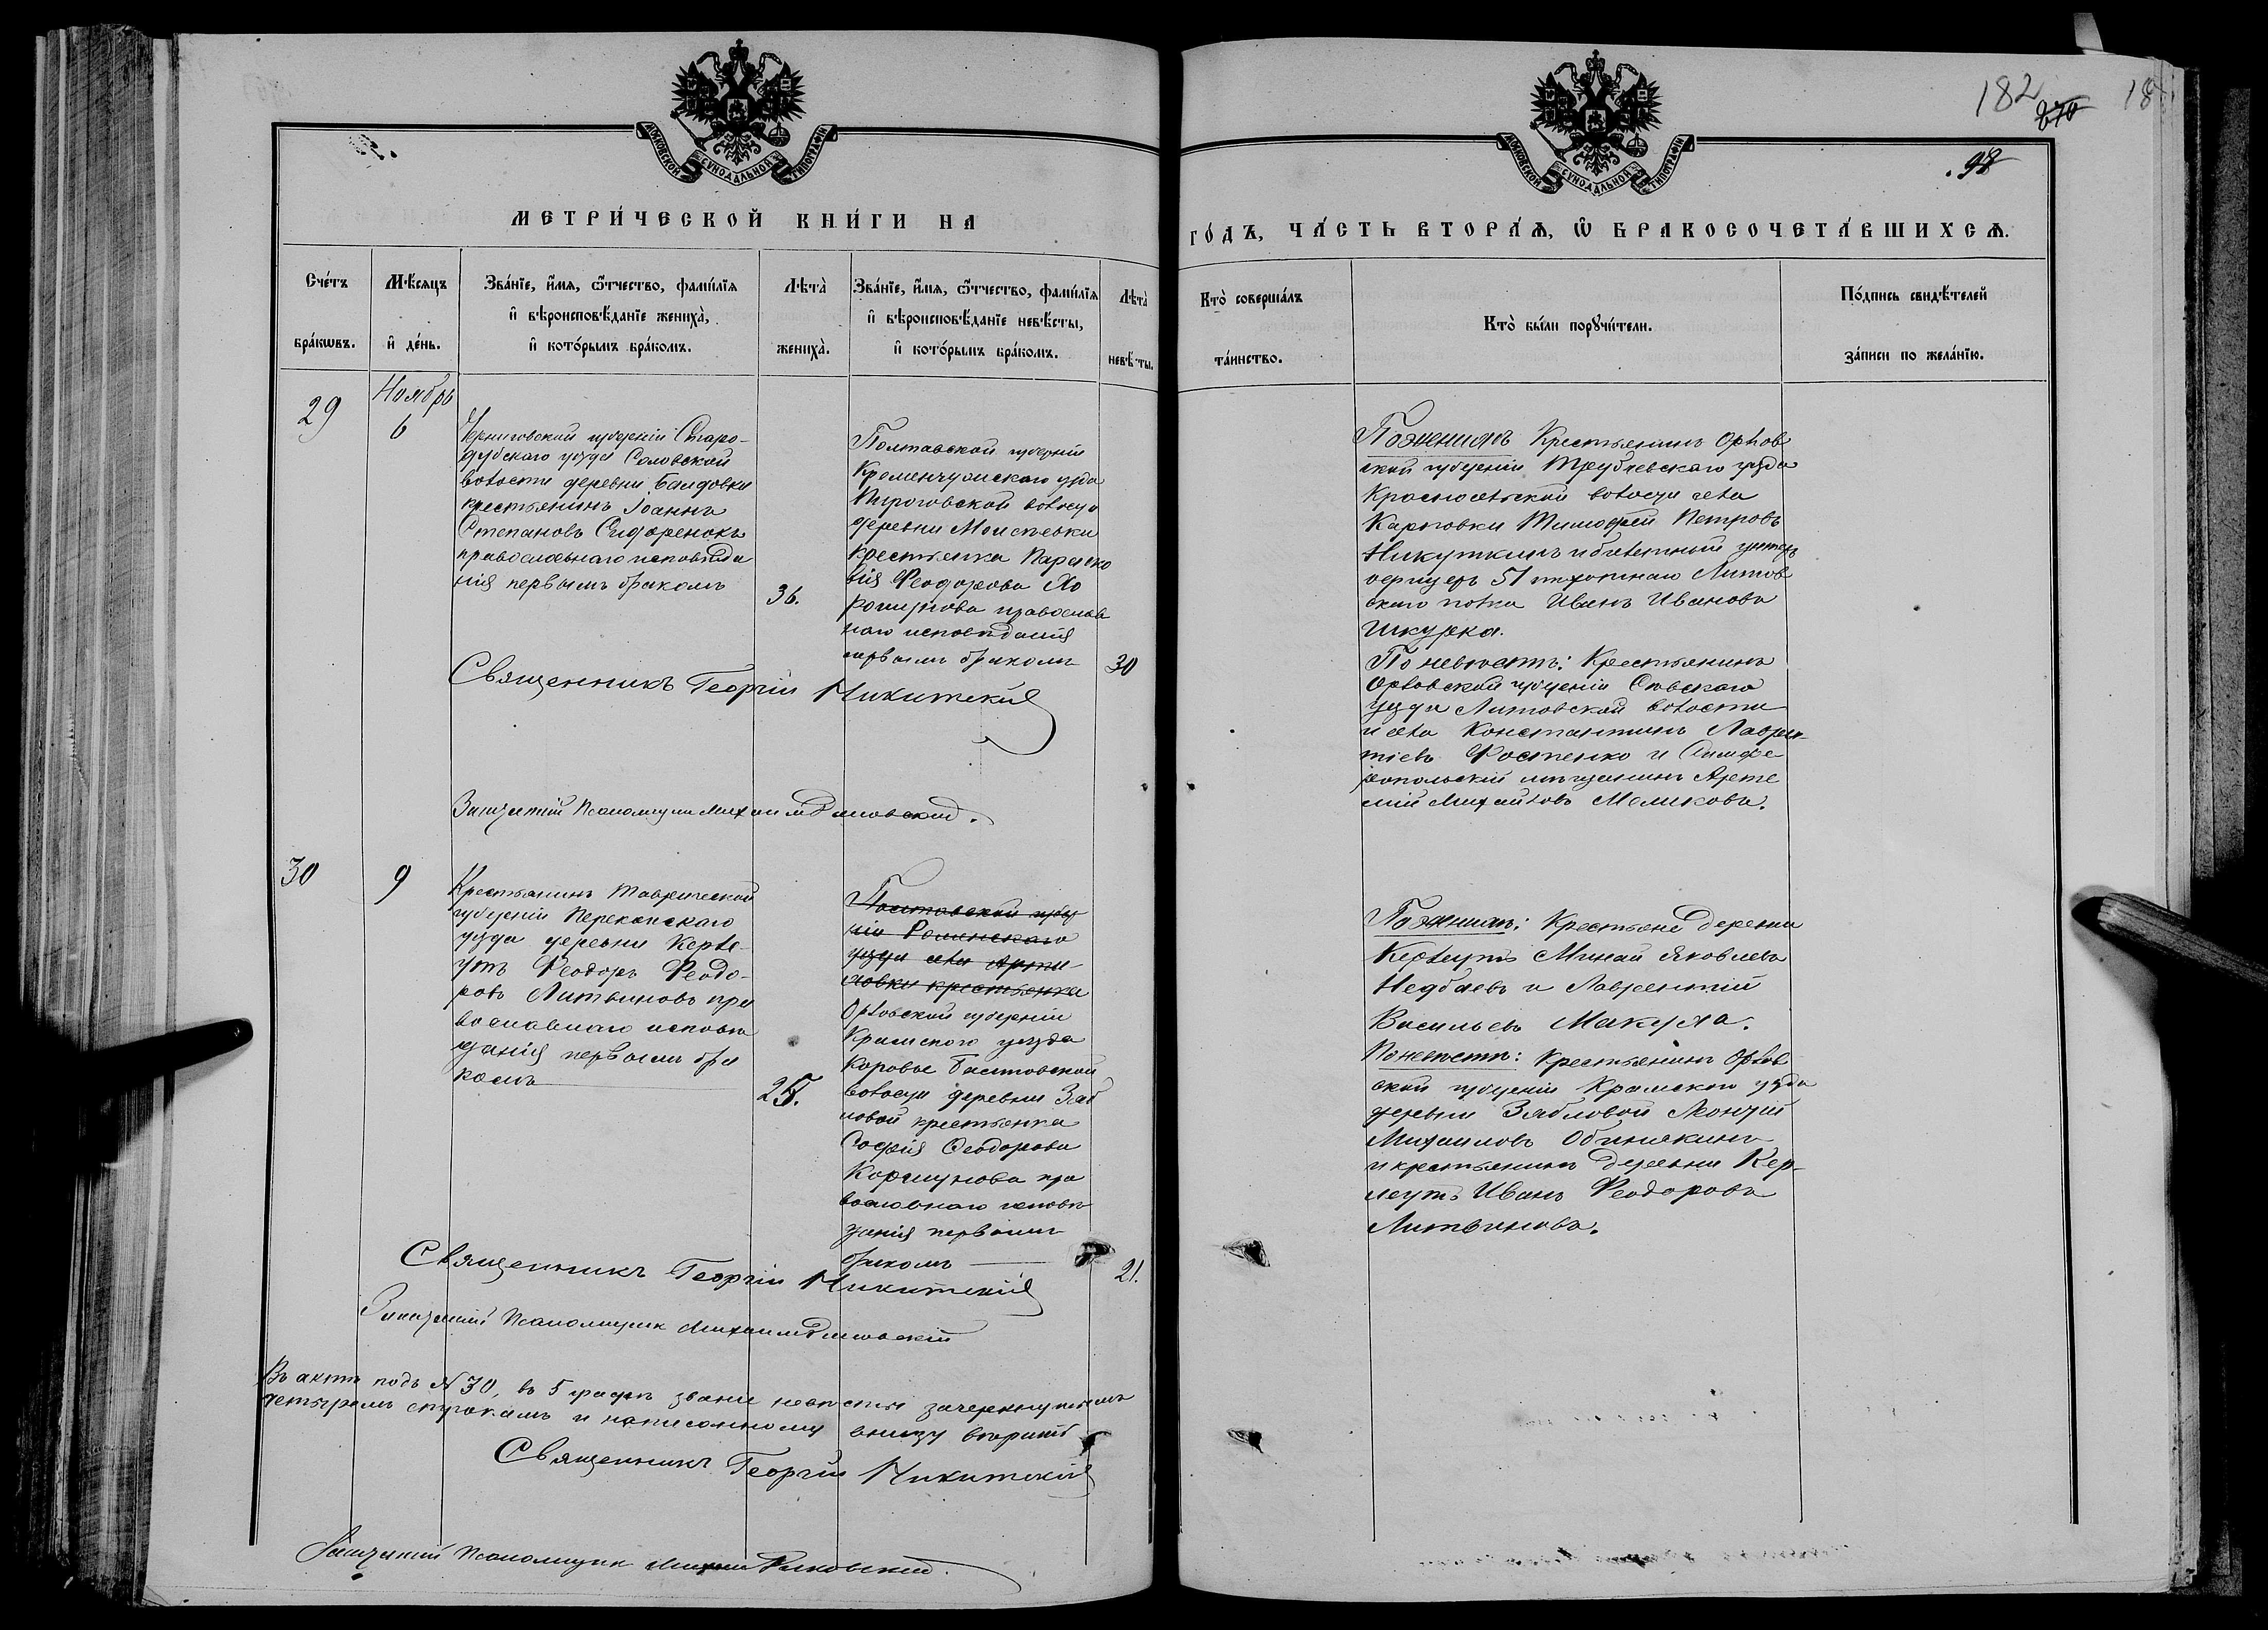 182
270
18
98
МОСКОВСКОЙ СѴНОДАЛЬНОЙ ТИПОГРАФІИ
МОСКОВСКОЙ СѴНОДАЛЬНОЙ ТИПОГРАФІИ
МЕТРИ́ЧЕСКОЙ КНИ́ГИ НА
ГО́ДЪ, ЧА́СТЬ ВТОРА́Ѧ, Ѽ БРАКОСОЧЕТА́ВШИХСѦ.
Сче́тъ
бра́кѡвъ.
Мѣ́сяцъ
и҆ де́нь.
Зва́нїе, и҆́мя, ѻ҆́тчество, фами́лїя
и҆ вѣроисповѣ́данїе жениха̀,
и҆ кото́рымъ бра́комъ.
Лѣта̀
жениха̀.
Зва́нїе, и҆́мя, ѻ҆́тчество, фами́лїя
и҆ вѣроисповѣ́данїе невѣ́сты,
и҆ кото́рымъ бра́комъ.
Лѣта̀
невѣ́сты.
Кто̀ соверша́лъ
та́инство.
Кто̀ бы́ли порꙋчи́тели.
По́дпись свидѣ́телей
за́писи по жела́нїю.
29
Ноябрь
6
Черниговской губерніи Старо-
дубскаго уѣзда Соловской
волости деревни
крестьянинъ Іоаннъ
Степановъ Сидоренокъ
православнаго исповѣда
нія первымъ бракомъ
36.
Полтавской губерніи
Кременчугскаго уѣзда
Пироговской волости
деревни Моисѣевки
крестьянка Параске
вія Феодорова Хо
рошунова православ
наго исповѣданія
первымъ бракомъ
30
Поженихѣ Крестьянинъ Орлов
ской губерніи Трубчевскаго уѣзда
Красносельской волости села
Карповки Тимофей Петровъ
Никуткинъ и билетный унтеръ
офицеръ 51 пѣхотнаго Литов
скаго полка Иванъ Ивановъ
Шкурка.
По невѣстѣ: Крестьянинъ
Орловской губерніи Сѣвскаго
уѣзда Литовской волости
и села Константинъ Лаврен-
тіевъ Фостенко и Симфе
ропольскій мѣщанинъ Арте
мій Михайловъ Меликовъ.
Священникъ Георгій Никитскій
Псаломщикъ Михаилъ
30
9
Крестьянинъ Таврической
губерніи Перекопскаго
уѣзда деревни Керле-
утъ Феодоръ Феодо-
ровъ Литвиновъ пра
вославнаго исповѣ
данія первымъ бра
комъ
25.
Полтавской губер
ніи Роменскаго
уѣзда села
крестьянка
Орловской губерніи
Кромскаго уѣзда
Коровье Болотовской
волости деревни Зяб
ловой крестьянка
Софія Феодорова
Коршунова пра
вославнаго исповѣ
данія первымъ
бракомъ
21.
Поженихѣ: Крестьяне деревни
Керлеутъ Минай Яковлевъ
Недбаевъ и Лаврентій
Васильевъ Макуха.
Поневѣстѣ: Крестьянинъ Орлов
ской губерніи Кромскаго уѣзда
деревни Зябловой
Михаиловъ Обинякинъ
и крестьянинъ деревни Кер-
леутъ Иванъ Феодоровъ
Литвиновъ.
Священникъ Георгій Никитскій
Псаломщикъ Михаилъ
Въ актѣ подъ №30, въ 5 графѣ званіе невѣсты зачеркнутымъ
четыремъ строкамъ и написанному внизу вѣрить
Священникъ Георгій Никитскій
Псаломщикъ Михаилъ